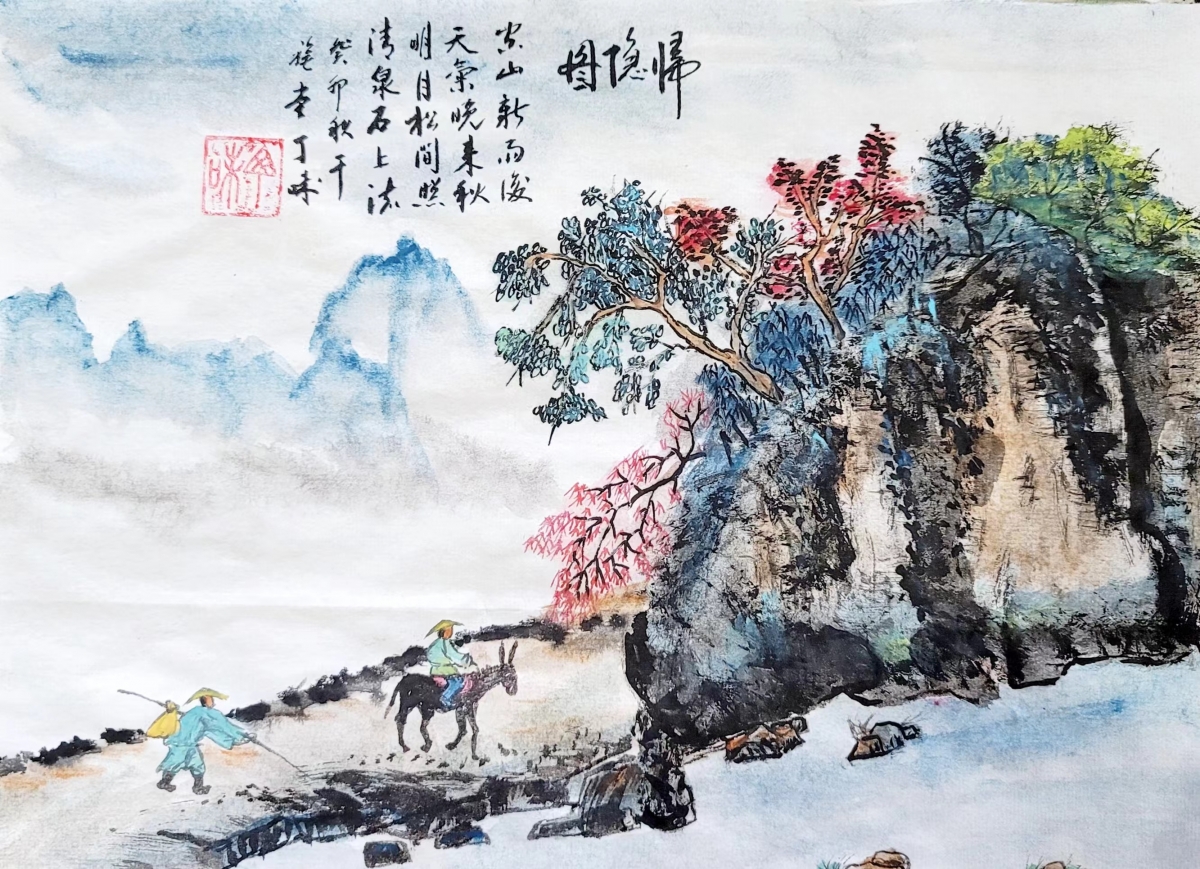 帰隐图
空山新雨後
天氣晚来秋
明月松間照
清泉石上流
癸卯秋于
丁味